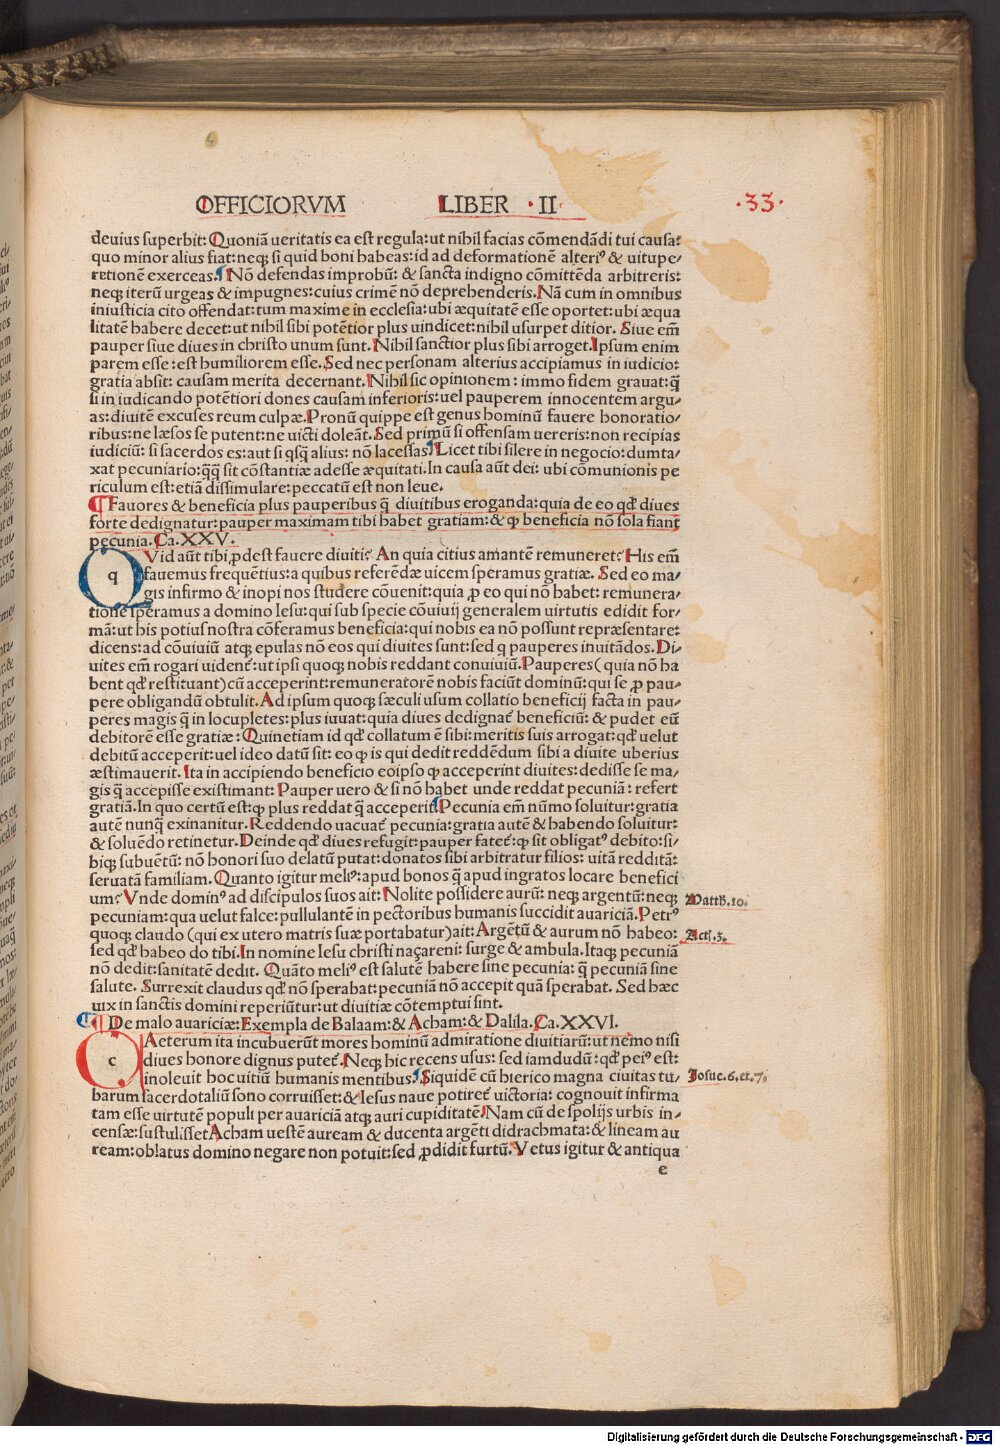 OFFICIORVM LIBER · II · ·33·
deuius superbit: Quoniã ueritatis ea est regula: ut nihil facias cõmendãdi tui causa:
quo minor alius fiat: neqȝ si quid boni habeas: id ad deformationẽ alteriꝰ & uitupe/
rationẽ exerceas. ¶ Nõ defendas improbũ: & sancta indigno cõmittẽda arbitreris:
neqȝ iterũ urgeas & impugnes: cuius crimẽ nõ deprehenderis. Nã cum in omnibus
iniusticia cito offendat: tum maxime in ecclesia: ubi æquitatẽ esse oportet: ubi æqua
litatẽ habere decet: ut nihil sibi potẽtior plus uindicet: nihil usurpet ditior. Siue em̃
pauper siue diues in christo unum sunt. Nihil sanctior plus sibi arroget. Ipsum enim
parem esse: est humiliorem esse. Sed nec personam alterius accipiamus in iudicio:
gratia absit: causam merita decernant. Nihil sic opinionem: immo fidem grauat: q̃
si in iudicando potẽtiori dones causam inferioris: uel pauperem innocentem argu/
as: diuitẽ excuses reum culpæ. Pronũ quippe est genus hominũ fauere honoratio/
ribus: ne læsos se putent: ne uicti doleãt. Sed primũ si offensam uereris: non recipias
iudiciũ: si sacerdos es: aut si qsq̃ alius: nõ lacessas. ¶ Licet tibi silere in negocio: dumta/
xat pecuniario: q̃q̃ sit cõstantiæ adesse æquitati. In causa aũt dei: ubi cõmunionis pe
riculum est: etiã dissimulare: peccatũ est non leue.
¶ Fauores & beneficia plus pauperibus q̃ diuitibus eroganda: quia de eo qđ diues
forte dedignatur: pauper maximam tibi habet gratiam: & ꝙ beneficia nõ sola fiant
pecunia. Ca. XXV.
q Vid aũt tibi ꝓdest fauere diuiti? An quia citius amantẽ remuneret? His em̃
fauemus frequẽtius: a quibus referẽdæ uicem speramus gratiæ. Sed eo ma/
gis infirmo & inopi nos studere cõuenit: quia ꝓ eo qui nõ habet: remunera/
tionẽ speramus a domino Iesu: qui sub specie cõuiuij generalem uirtutis edidit for/
mã: ut his potius nostra cõferamus beneficia: qui nobis ea nõ possunt repræsentare:
dicens: ad cõuiuiũ atqȝ epulas nõ eos qui diuites sunt: sed q pauperes inuitãdos. Di/
uites em̃ rogari uident̃: ut ipsi quoqȝ nobis reddant conuiuiũ. Pauperes (quia nõ ha
bent qđ restituant) cũ acceperint: remuneratorẽ nobis faciũt dominũ: qui se ꝓ pau/
pere obligandũ obtulit. Ad ipsum quoqȝ sæculi usum collatio beneficij facta in pau/
peres magis q̃ in locupletes: plus iuuat: quia diues dedignat̃ beneficiũ: & pudet eũ
debitorẽ esse gratiæ: Quinetiam id qđ collatum ẽ sibi: meritis suis arrogat: qđ uelut
debitũ acceperit: uel ideo datũ sit: eo ꝙ is qui dedit reddẽdum sibi a diuite uberius
æstimauerit. Ita in accipiendo beneficio eoipso ꝙ acceperint diuites: dedisse se ma/
gis q̃ accepisse existimant: Pauper uero & si nõ habet unde reddat pecuniã: refert
gratiã. In quo certũ est: ꝙ plus reddat q̃ acceperit. ¶ Pecunia em̃ nũmo soluitur: gratia
autẽ nunq̃ exinanitur. Reddendo uacuat̃ pecunia: gratia autẽ & habendo soluitur:
& soluẽdo retinetur. Deinde qđ diues refugit: pauper fatet̃: ꝙ sit obligatꝰ debito: si/
biqȝ subuẽtũ: nõ honori suo delatũ putat: donatos sibi arbitratur filios: uitã redditã:
seruatã familiam. Quanto igitur meliꝰ: apud bonos q̃ apud ingratos locare benefici
um? Vnde dominꝰ ad discipulos suos ait: Nolite possidere aurũ: neqȝ argentũ: neqȝ
Matth. 10.
pecuniam: qua uelut falce: pullulantẽ in pectoribus humanis succidit auariciã. Petrꝰ
quoqȝ claudo (qui ex utero matris suæ portabatur) ait: Argẽtũ & aurum nõ habeo:
Act. 3.
sed qđ habeo do tibi. In nomine Iesu christi naçareni: surge & ambula. Itaqȝ pecuniã
nõ dedit: sanitatẽ dedit. Quãto meliꝰ est salutẽ habere sine pecunia: q̃ pecuniã sine
salute. Surrexit claudus qđ nõ sperabat: pecuniã nõ accepit quã sperabat. Sed hæc
uix in sanctis domini reperiũtur: ut diuitiæ cõtemptui sint.
¶ De malo auariciæ: Exempla de Balaam: & Acham: & Dalila. Ca. XXVI.
c Aeterum ita incubuerũt mores hominũ admiratione diuitiarũ: ut nemo nisi
diues honore dignus putet̃. Neqȝ hic recens usus: sed iamdudũ: qđ peiꝰ est:
inoleuit hoc uitiũ humanis mentibus. ¶ Siquidẽ cũ hierico magna ciuitas tu/
Iosue. 6. et. 7.
barum sacerdotaliũ sono corruisset: & Iesus naue potiret̃ uictoria: cognouit infirma
tam esse uirtutẽ populi per auariciã atqȝ auri cupiditatẽ. Nam cũ de spolijs urbis in/
censæ: sustulisset Acham uestẽ auream & ducenta argẽti didrachmata: & lineam au
ream: oblatus domino negare non potuit: sed ꝓdidit furtũ. Vetus igitur & antiqua
e
Digitalisierung gefördert durch die Deutsche Forschungsgemeinschaft - DFG